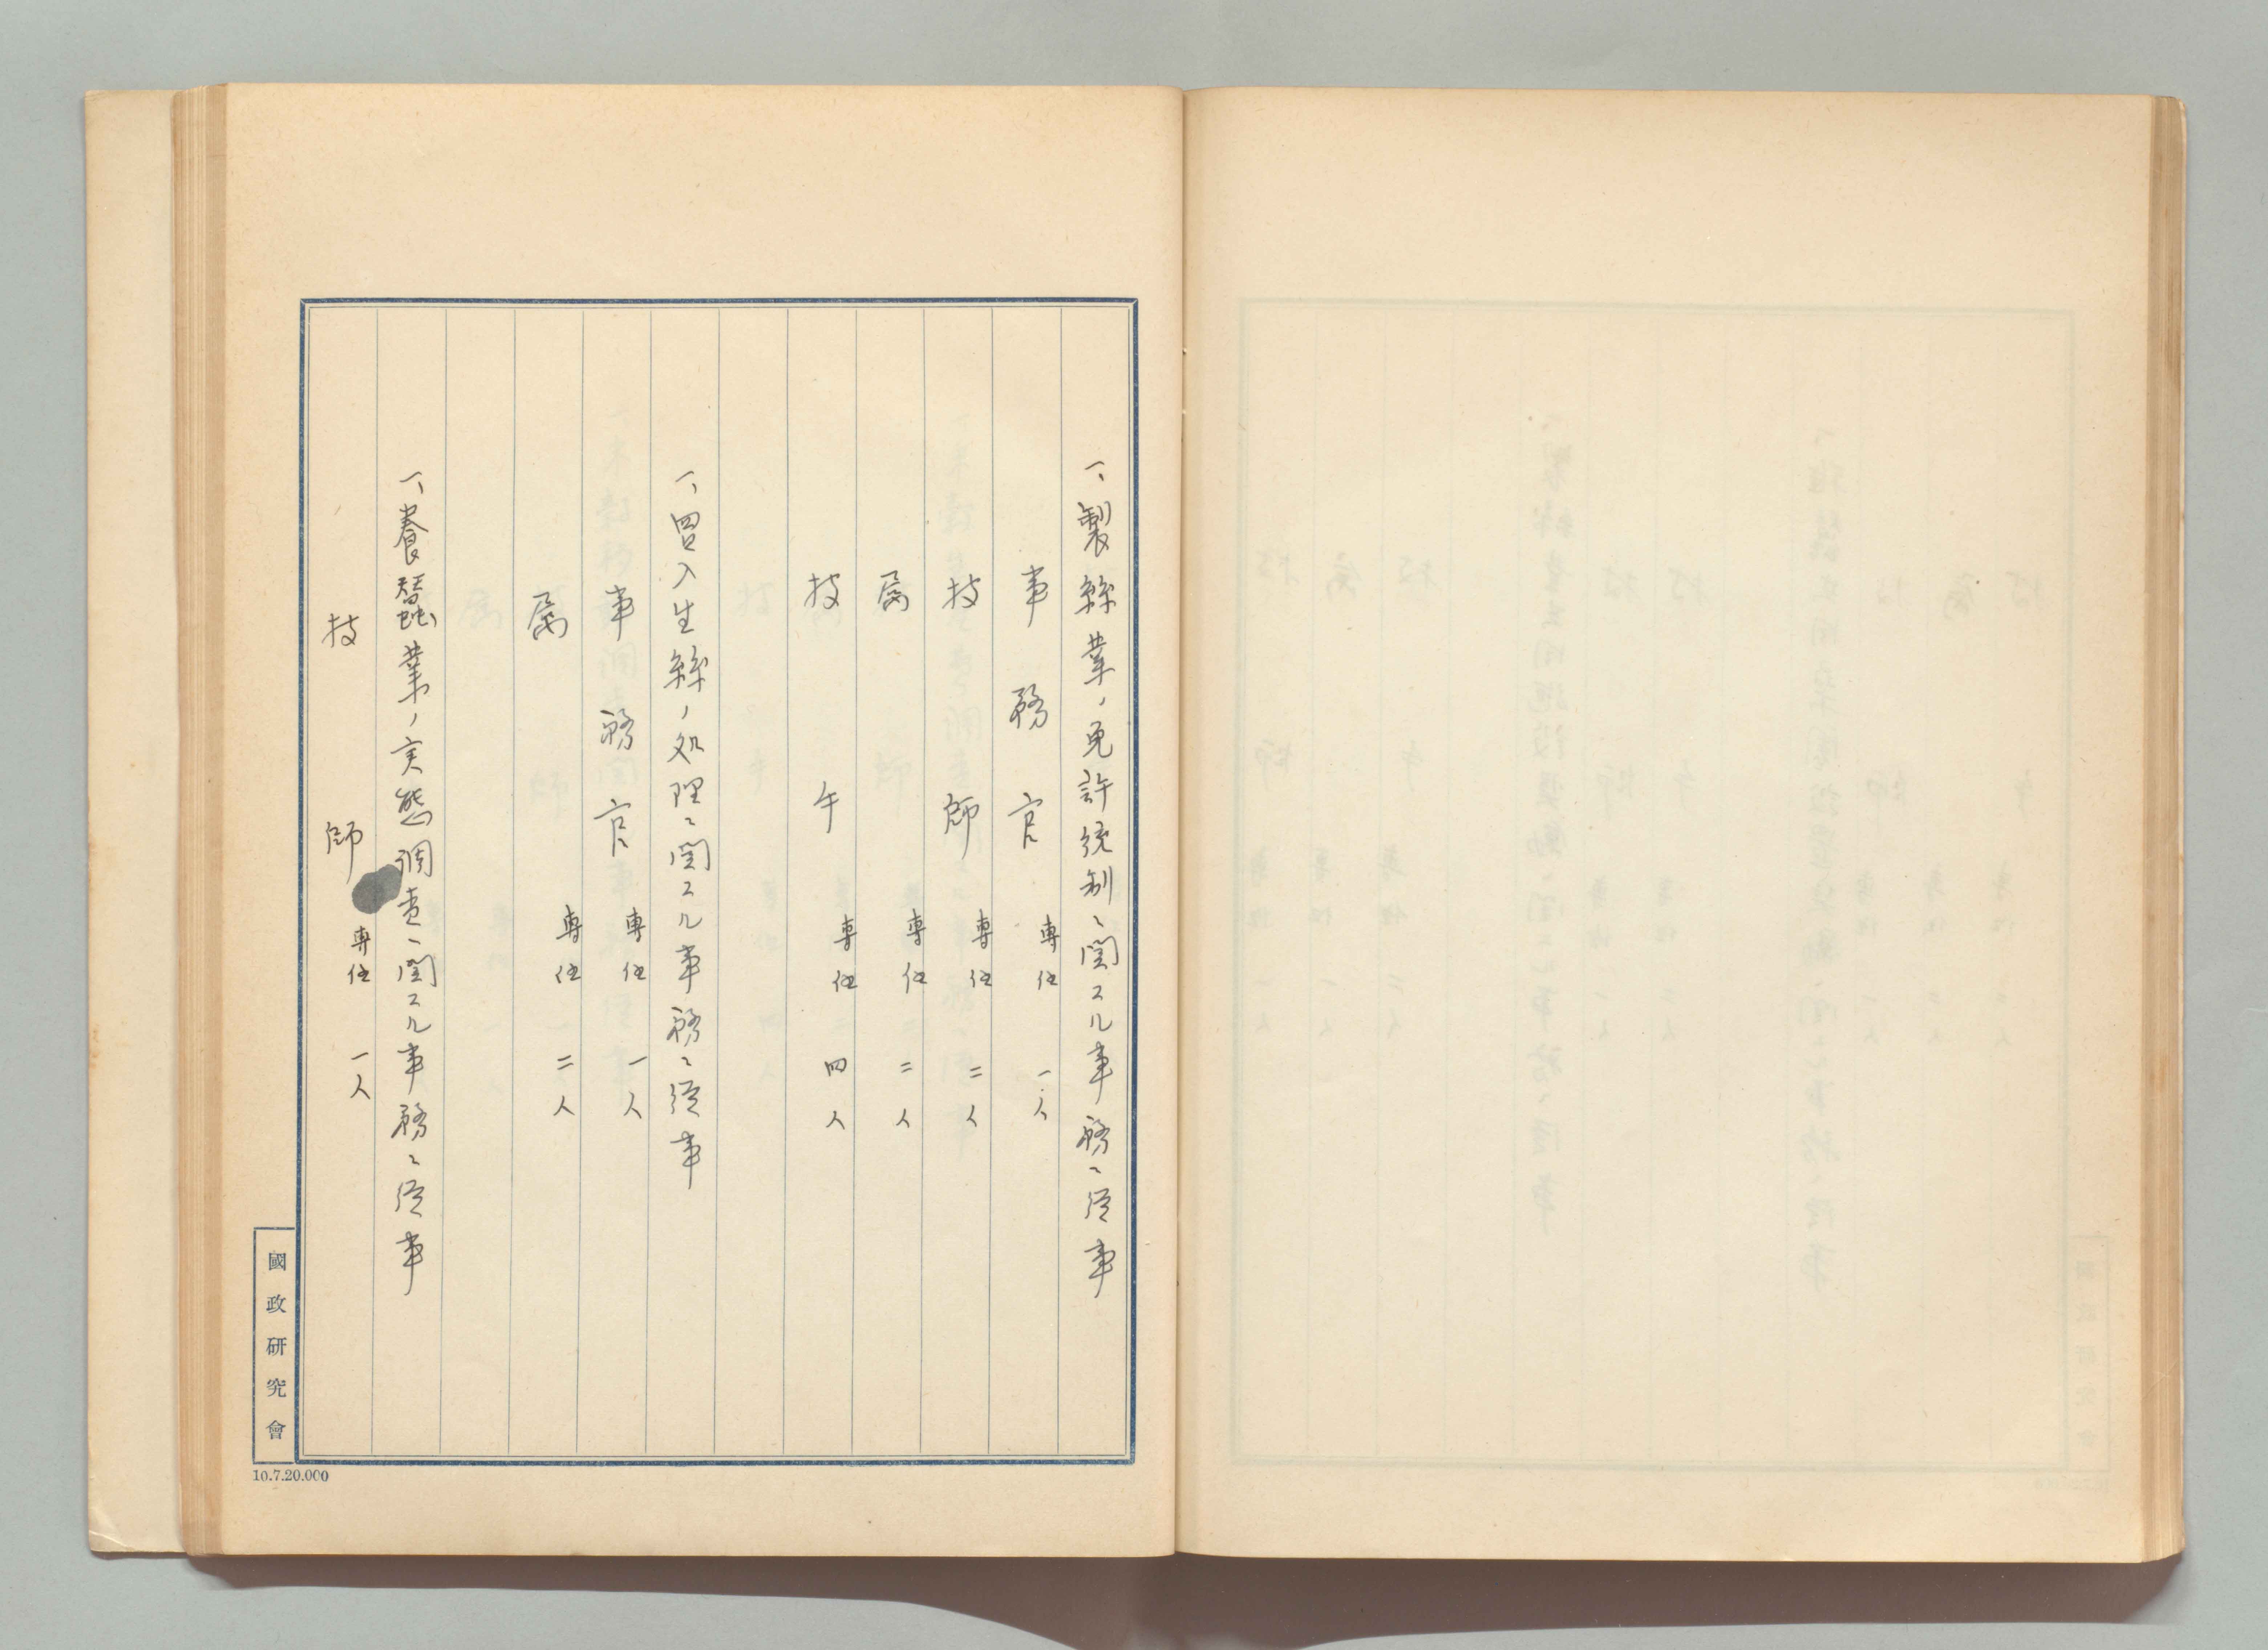 一、製絲業ノ免許統制ニ関スル事務ニ従事
事務官 専任 一人
技師 専任 二人
属 専任 二人
技手 専任 四人
一、買入生絲ノ処理ニ関スル事務ニ従事
事務官 専任 一人
属 専任 二人
一、養蠶業ノ実態調査ニ関スル事務ニ従事
技師 専任 一人
國政研究會
10.7.20.000